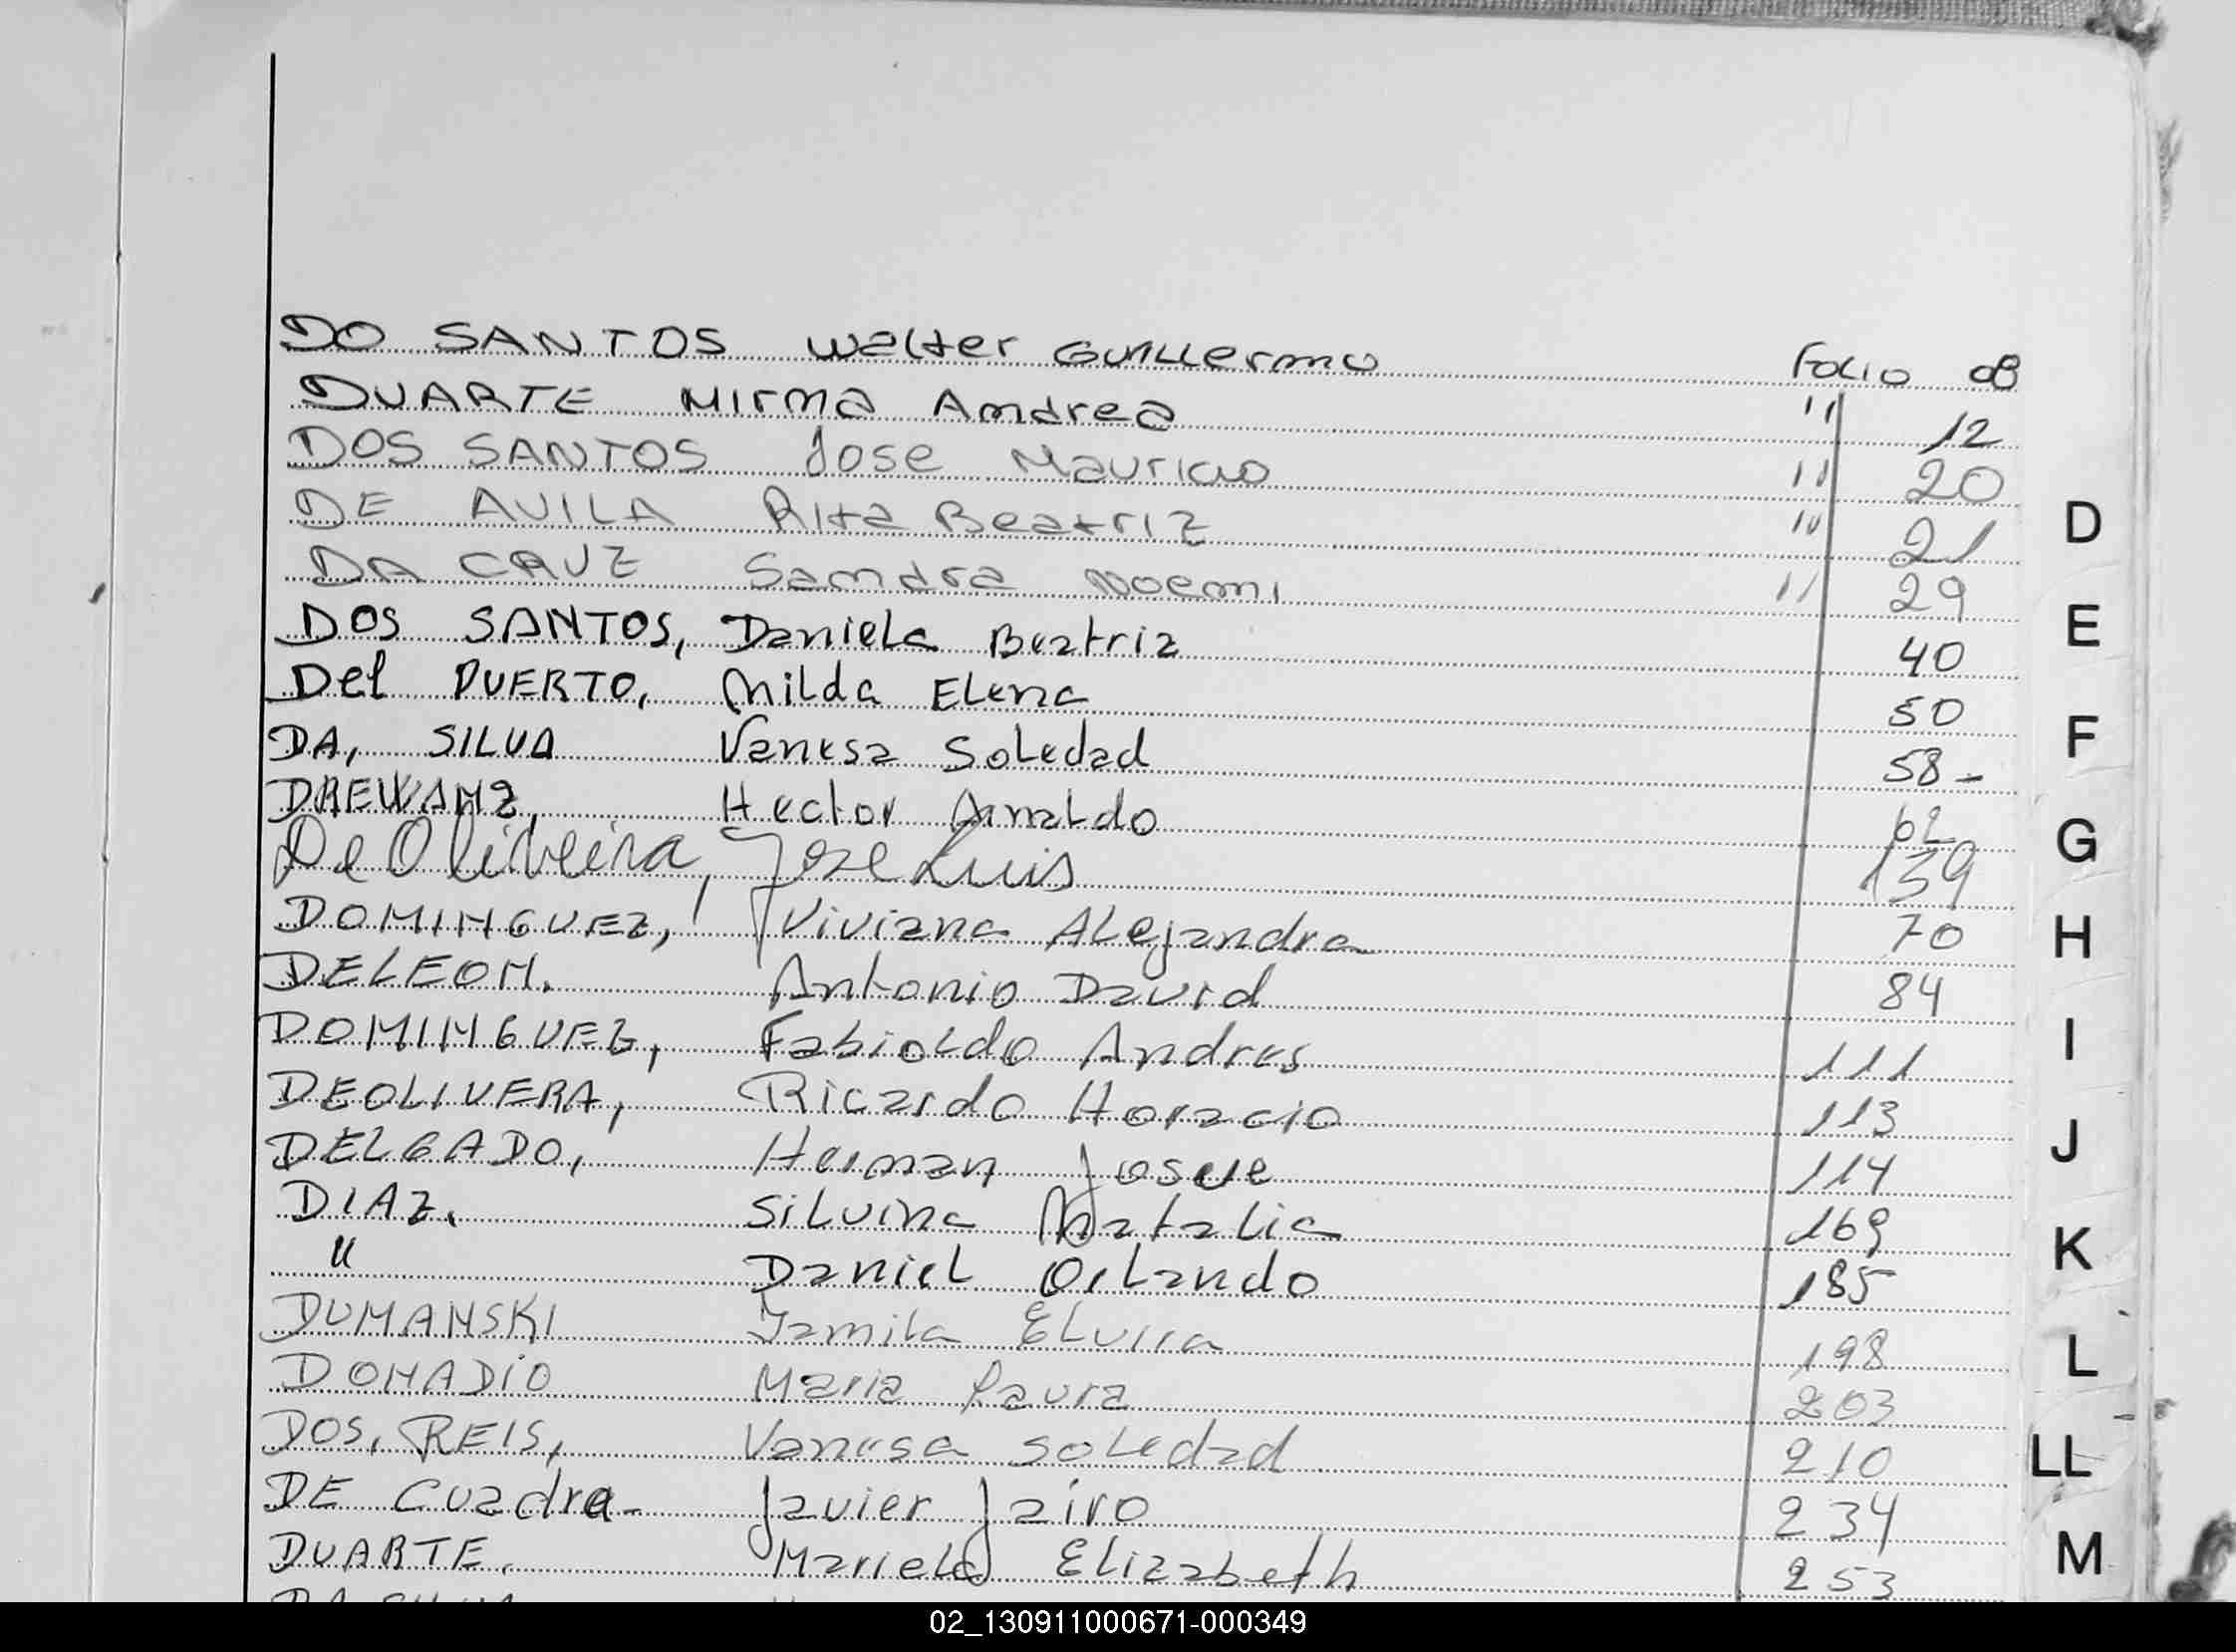 DO SANTOS Walter Guillermo Folio 08
DUARTE Mirma Amdrea " 12
DOS SANTOS Jose Mauricio " 20
DE AVILA Rita Beatriz " 21
DA CRUZ Samdra Noemi " 29
DOS SANTOS, Daniela Beatriz 40
Del PUERTO, Nilda Elena 50
DA, SILVA Vanesa Soledad 58 -
DREWANZ, Hector Arnaldo 62
De Oliveira, Jose Luis 139
DOMINGUEZ, Viviana Alejandra 70
DELEON. Antonio David 84
DOMINGUEZ, Fabioldo Andres 111
DEOLIVERA, Ricardo Horacio 113
DELGADO, Herman Josue 114
DIAZ. Silvina Natalia 169
" Daniel Orlando 185
DUMANSKI Jamila Elvira 198
DONADIO Maria Laura 203
DOS, REIS, Vanesa Soledad 210
DE Cuadra - Javier Jairo 234
DUARTE. Mariela Elizabeth 253
DA SILVA
D
E
F
G
H
I
J
K
L
LL
M
02_130911000671-000349